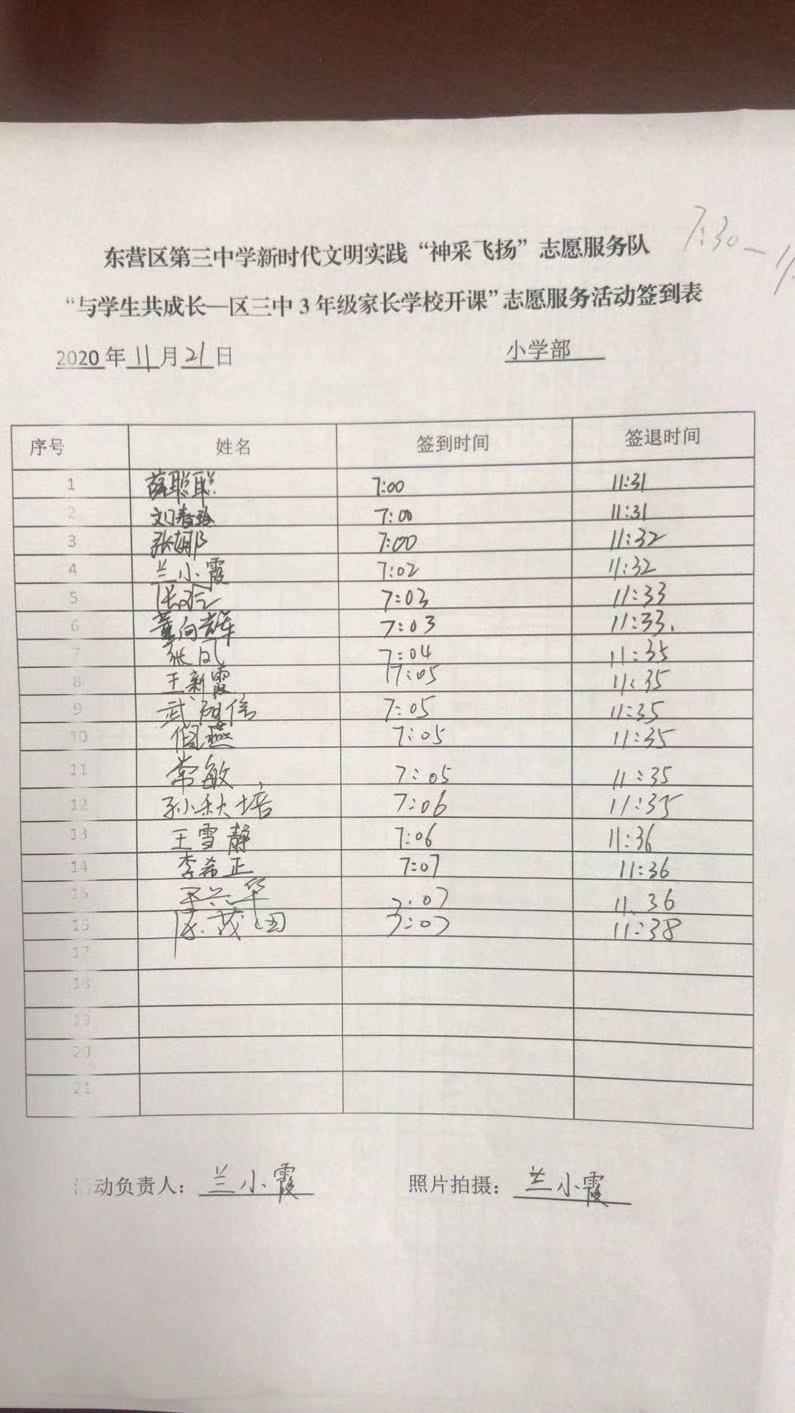 7:30—11
东营区第三中学新时代文明实践“神采飞扬”志愿服务队
“与学生共成长—区三中3年级家长学校开课”志愿服务活动签到表
2020年11月21日 小学部
序号 姓名 签到时间 签退时间
1 薛聪聪 7:00 11:31
2 刘春玲 7:00 11:31
3 张娜 7:00 11:32
4 兰小霞 7:02 11:32
5 7:03 11:33
6 董向军 7:03 11:33.
7 张凤 7:04 11:35
8 王新霞 7:05 11:35
9 武 7:05 11:35
10 燕 7:05 11:35
11 常敏 7:05 11:35
12 孙秋培 7:06 11:35
13 王雪静 7:06 11:36
14 李希正 7:07 11:36
15 王兴华 7:07 11:36
16 陈茂国 7:07 11:38
17
18
19
20
21
活动负责人：兰小霞 照片拍摄：兰小霞